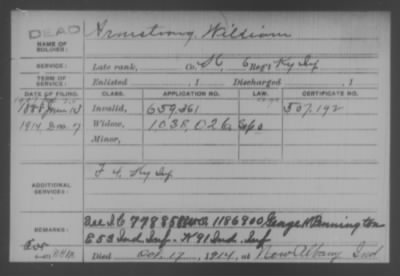 DEAD
NAME OF SOLDIER:
Armstrong, William
SERVICE:
Late rank, Co. Reg't Ky Inf
TERM OF SERVICE:
Enlisted , 1 Discharged , 1
DATE OF FILING. CLASS. APPLICATION NO. LAW. CERTIFICATE NO.
1888 Invalid, 659,361 507,192
1914 Nov. 7 Widow, 1038,026
Minor,
ADDITIONAL SERVICES:
F 4, Ky Inf
REMARKS:
See I.C 1186900 George H Pennington
E 53 Ind Inf. - K 91 Ind. Inf.
Died Oct. 17, 1914, at New Albany Ind